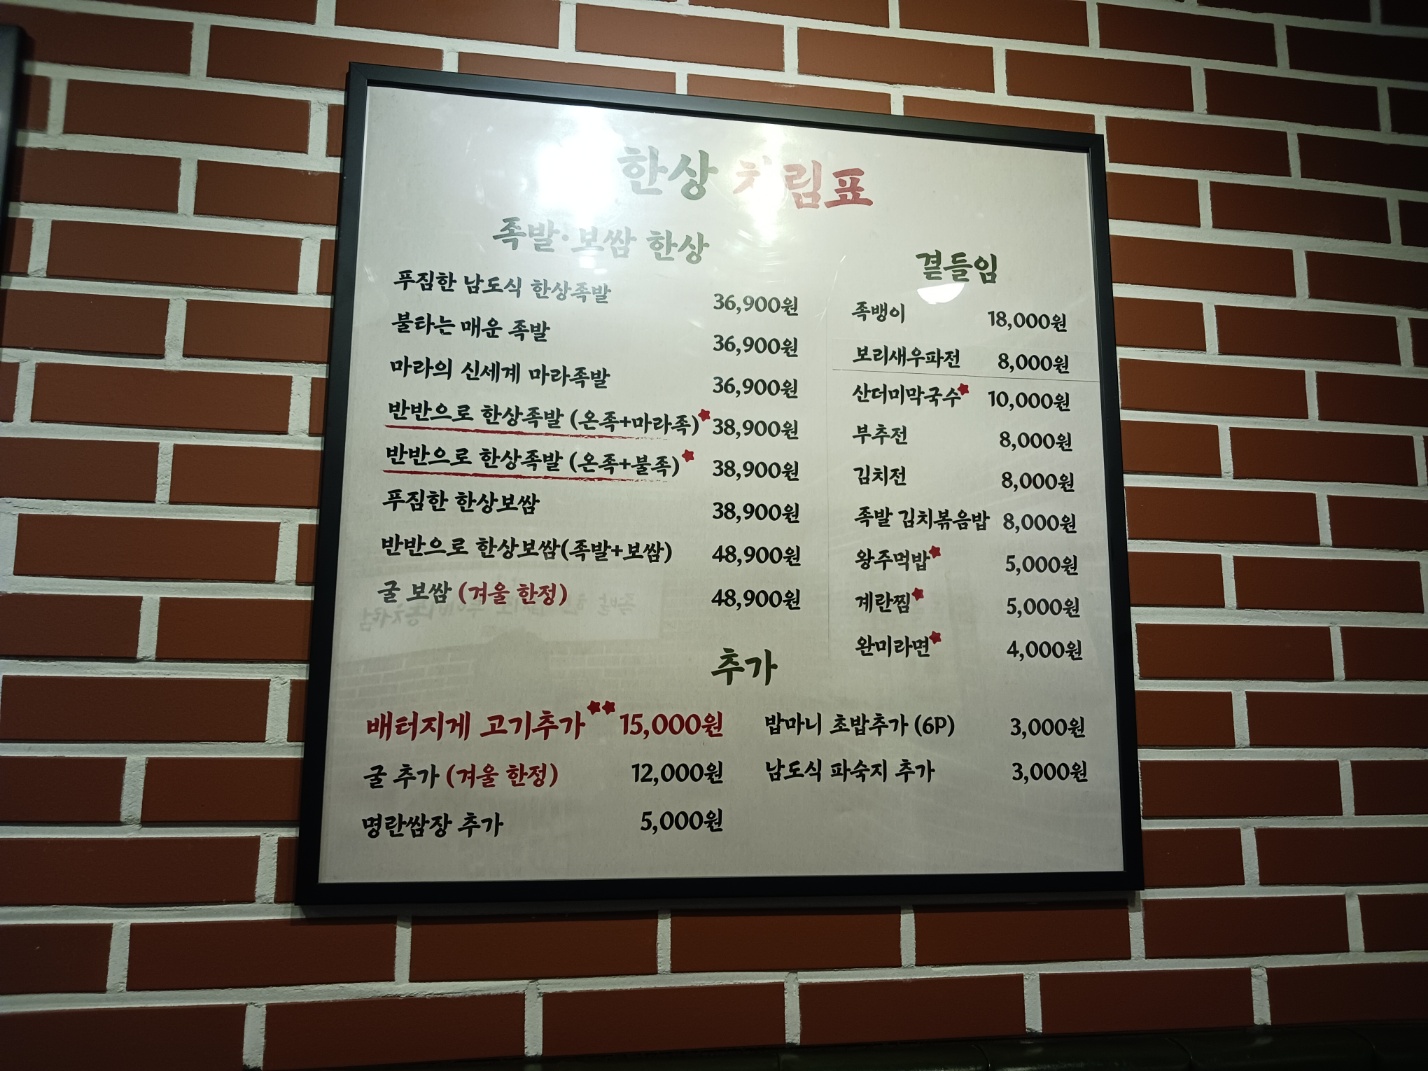 한상 차림표
족발·보쌈 한상
푸짐한 남도식 한상족발 36,900원
불타는 매운 족발 36,900원
마라의 신세계 마라족발 36,900원
반반으로 한상족발 (온족+마라족) 38,900원
반반으로 한상족발 (온족+불족) 38,900원
푸짐한 한상보쌈 38,900원
반반으로 한상보쌈(족발+보쌈) 48,900원
굴 보쌈 (겨울 한정) 48,900원
곁들임
족뱅이 18,000원
보리새우파전 8,000원
산더미막국수 10,000원
부추전 8,000원
김치전 8,000원
족발 김치볶음밥 8,000원
왕주먹밥 5,000원
계란찜 5,000원
완미라면 4,000원
추가
배터지게 고기추가 15,000원
굴 추가 (겨울 한정) 12,000원
명란쌈장 추가 5,000원
밥마니 초밥추가 (6P) 3,000원
남도식 파숙지 추가 3,000원